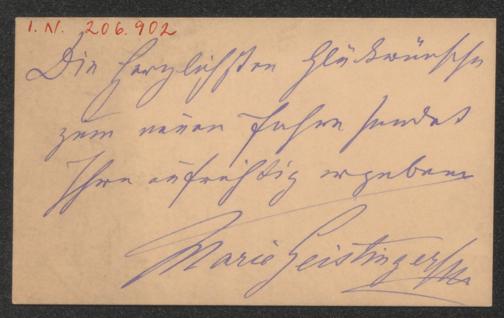 I. N. 206.902
Die herzlichsten Glückwünsche
zum neuen Jahre sendet
Ihre aufrichtig ergebene
Marie Geistinger